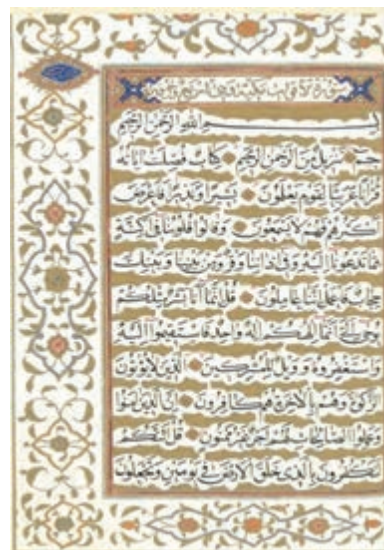 سورة
بسم الله الرحمن الرحيم
حم تنزيل من الرحمن الرحيم كتاب فصلت آياته
قرآنا عربيا لقوم يعلمون بشيرا ونذيرا فاعرض
اكثرهم فهم لا يسمعون وقالوا قلوبنا في اكنة
مما تدعونا اليه وفي آذاننا وقر ومن بيننا وبينك
حجاب فاعمل اننا عاملون قل انما انا بشر مثلكم
يوحى الي انما الهكم اله واحد فاستقيموا اليه
واستغفروه وويل للمشركين الذين لا يؤتون
الزكوة وهم بالاخرة هم كافرون ان الذين آمنوا
وعملوا الصالحات لهم اجر غير ممنون قل ائنكم
لتكفرون بالذي خلق الارض في يومين وتجعلون